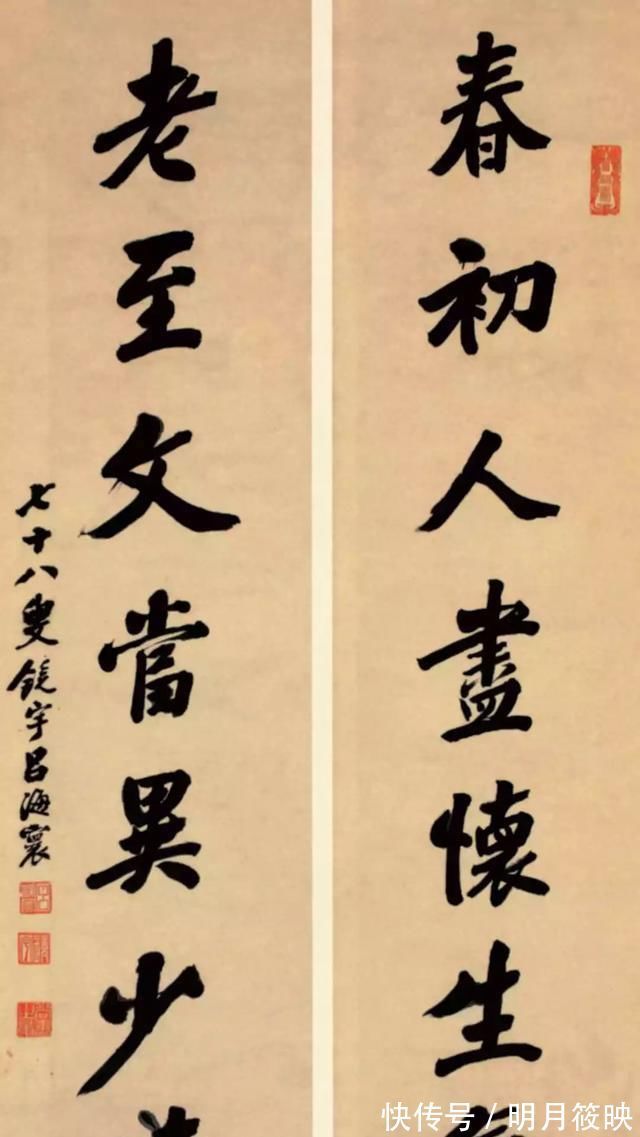 春初人盡懷生
老至文當異少
七十八叟鏡宇呂海寰
快传号／明月筱映